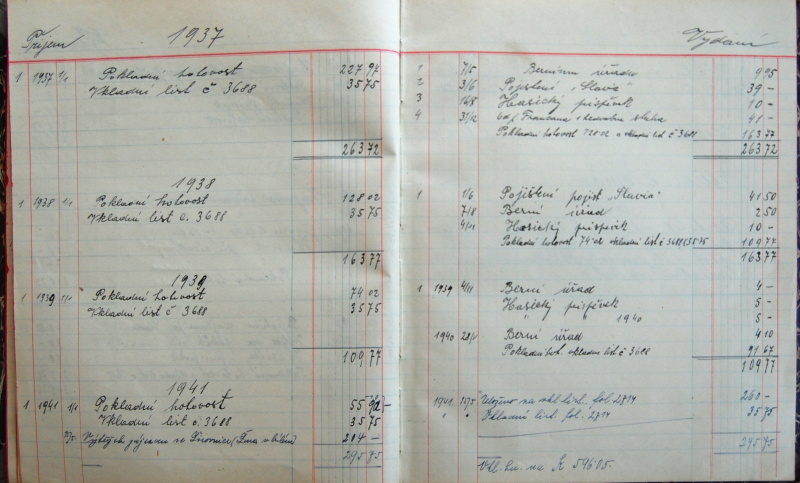 Příjem 1937
1 1937 1/1 Pokladní hotovost 227 97
Vkladní list č 3688 35 75
263 72
1938
1 1938 1/1 Pokladní hotovost 128 02
Vkladní list č. 3688 35 75
163 77
1939
1 1939 1/1 Pokladní hotovost 74 02
Vkladní list č 3688 35 75
109 77
1941
1 1941 1/1 Pokladní hotovost 55 92
Vkladní list č. 3688 35 75
204 —
295 75
Vydání
1 7/5 úřadu 9 95
2 3/6 Pojištění "Slavia" 39 —
3 Hasický příspěvek 10 —
4 31/12 41 —
Pokladní hotovost 128·02 a vkladní list č 3688 163 77
263 72
1 1/6 Pojištění pojist „Slavia" 41 50
7/8 Berní úřad 2 50
4/11 Hasický příspěvek 10 —
Pokladní hotovost 74·02 vkladní list č 3688/35·75 109 77
163 77
1 1939 4/11 Berní úřad 4 —
Hasický příspěvek 5 —
" " 1940 5 —
1940 28/1 Berní úřad 4 10
Pokladní hot. vkladem list č 3688 91 67
109 77
1941 15/5 Uloženo na vkl. list. fol. 2814 260 —
" " Vkladní list. fol. 2814 35 75
295 75
Vkl. kn. na K 596·05.